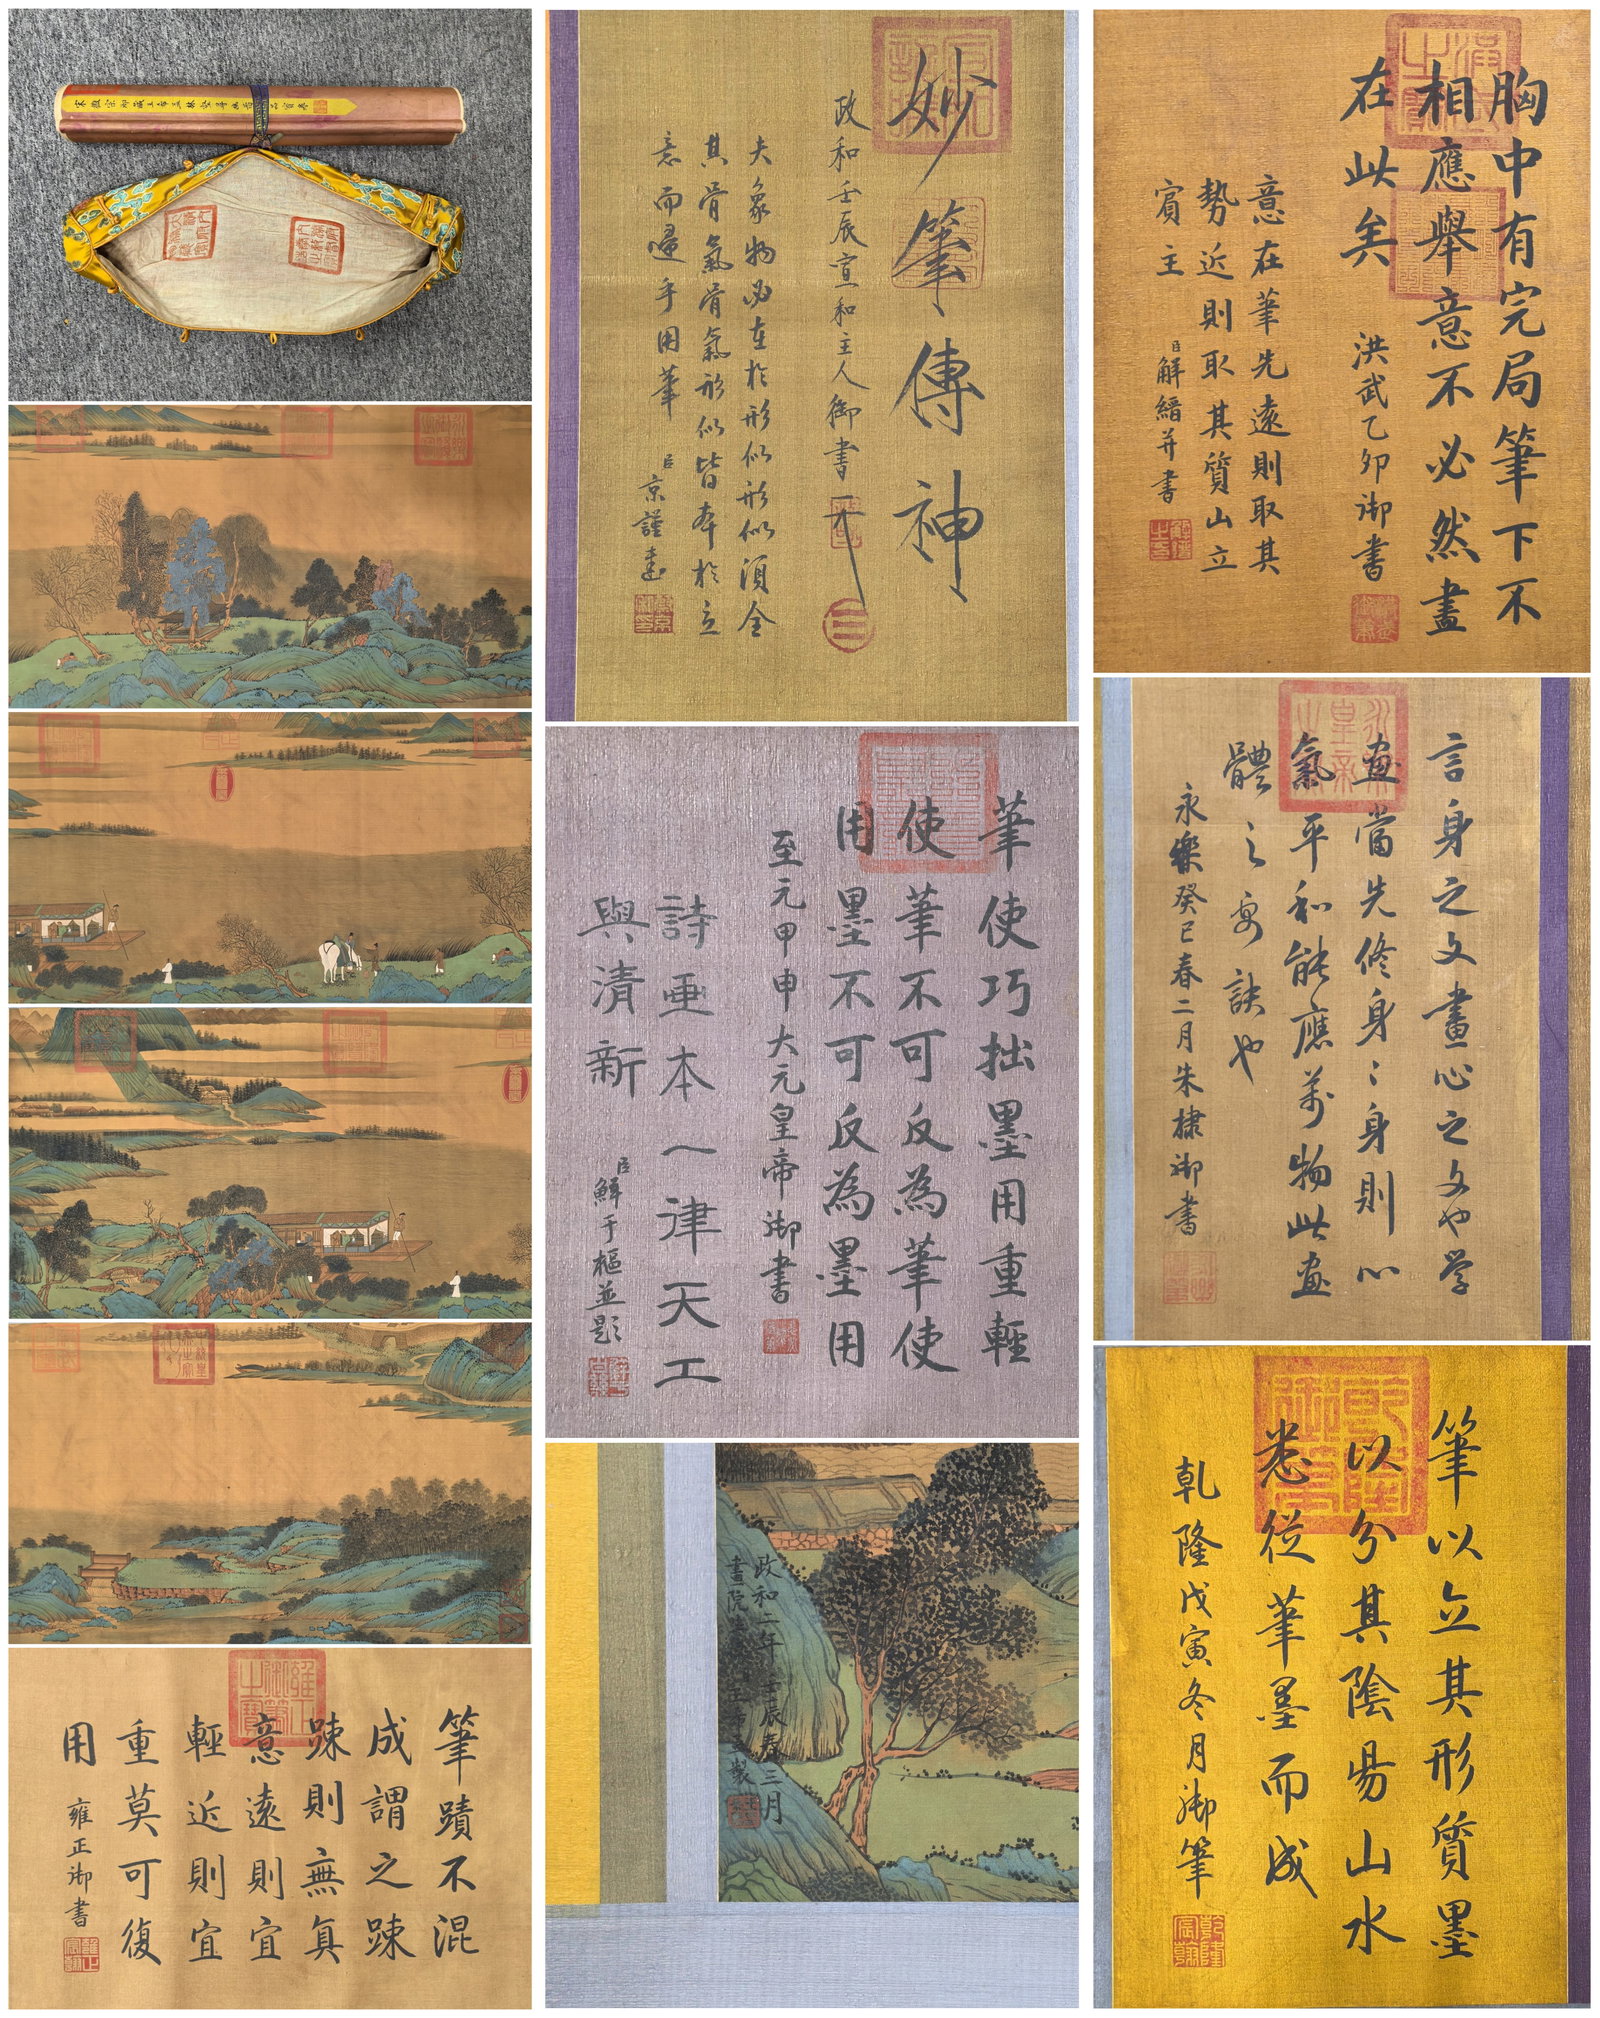 妙筆傳神
政和壬辰宣和主人御書
夫象物必在於形似形似須全
其骨氣骨氣形似皆本於立
意而歸乎用筆
臣京謹書
胸中有完局筆下不
相應舉意不必然盡
在此矣
洪武乙卯御書
意在筆先遠則取其
勢近則取其質山立
賓主
臣解縉并書
筆使巧拙墨用重輕
使筆不可反為筆使
用墨不可反為墨用
至元甲申大元皇帝御書
詩画本一律天工
與清新
臣鮮于樞並題
言身之文畫心之文也学
画當先修身〻身則心
氣平和能應萬物此画
體之要訣也
永樂癸巳春二月朱棣御書
政和二年壬辰春三月
畫院
製
筆以立其形質墨
以分其陰易山水
悉從筆墨而成
乾隆戊寅冬月御筆
筆蹟不混
成謂之踈
踈則無真
意遠則宜
輕近則宜
重莫可復
用
雍正御書